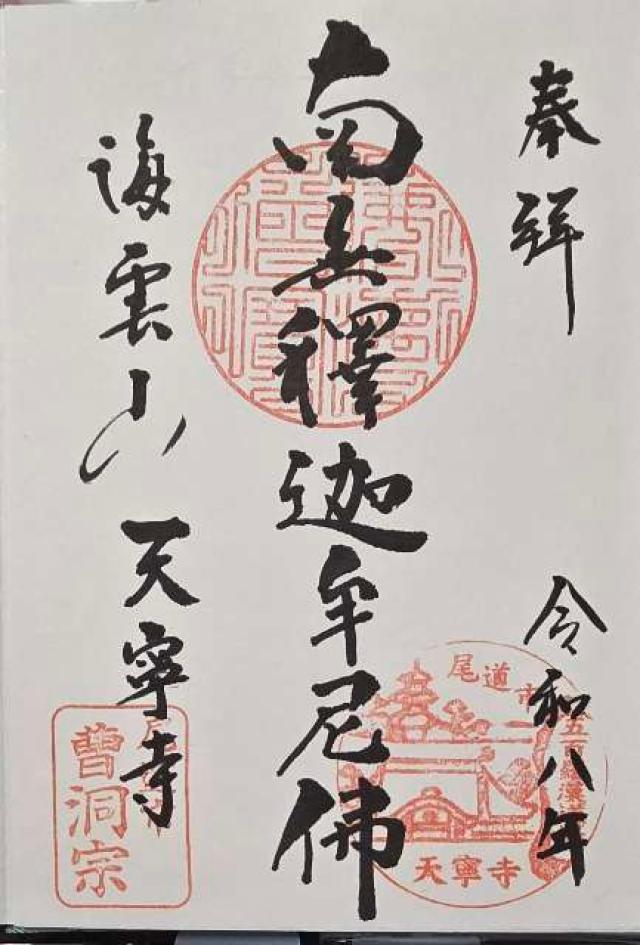 奉拜
令和八年
南無釋迦牟尼佛
海雲山
天寧寺
尾道市
天寧寺
曹洞宗